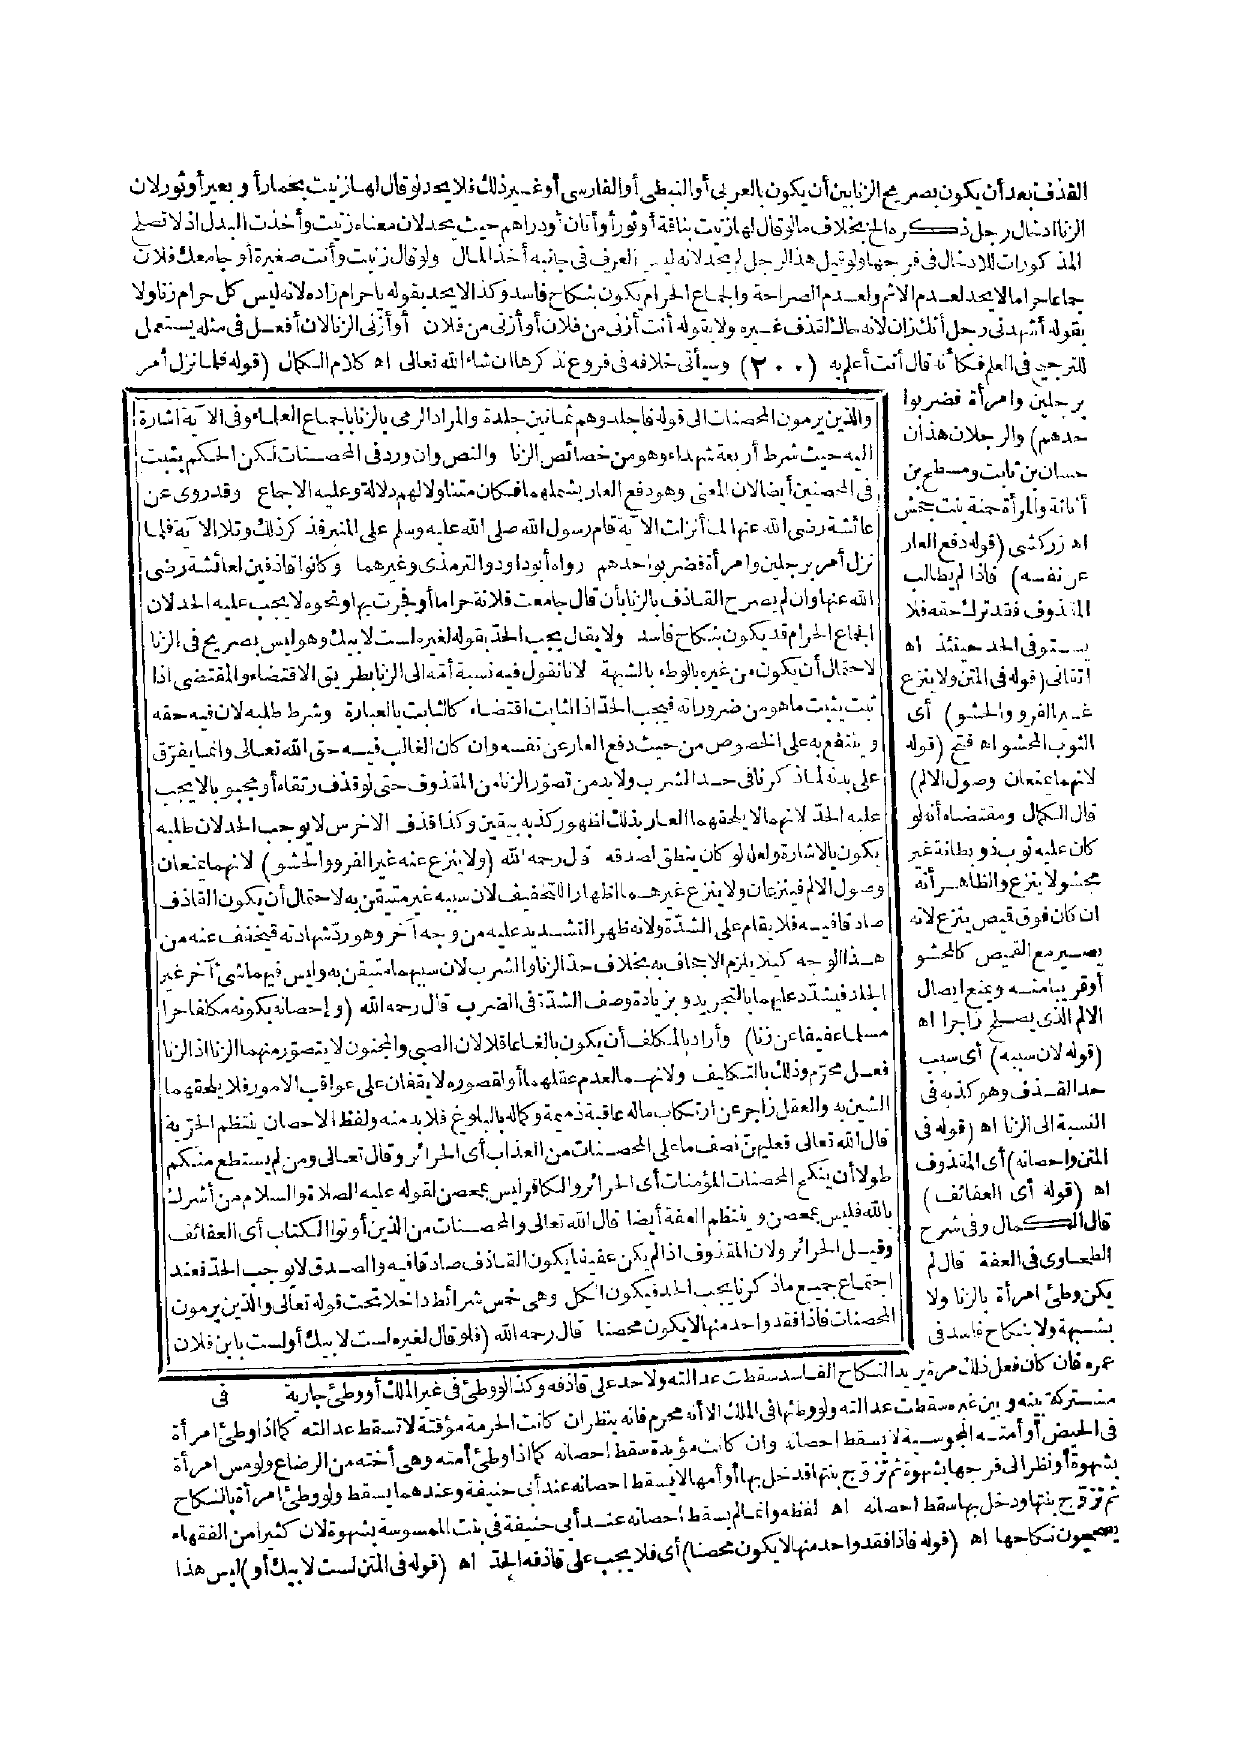 القذف بعد أن يكون بصريح الزنا بين أن يكون بالعربى أو النبطى أو الفارسى أو غير ذلك فلا يحد لو قال لها زنيت بحمار أو بعير أو ثور لان
الزنا ادخال رجل ذكره الخ بخلاف ما لو قال لها زنيت بناقة أو ثور أو أتان أو دراهم حيث يحد لان معناه زنيت وأخذت البدل اذ لا تصلح
المذكورات للادخال فى فرجها ولو قيل هذا لرجل لم يحد لانه ليس العرف فى جانبه أخذ المال ولو قال زنيت وأنت صغيرة أو جامعك فلان
جماعا حراما لا يحد لعدم الاثم ولعدم الصراحة والجماع الحرام يكون بنكاح فاسد وكذا لا يحد بقوله يا حرام زاده لانه ليس كل حرام زنا ولا
بقوله أشهدنى رجل أنك زان لانه حاك لقذف غيره ولا بقوله أنت أزنى من فلان أو أزنى من فلان أو أزنى الزنا لان أفعل فى مثله يستعمل
للترجيح فى العلم فكأنه قال أنت أعلم به (٢٠٠) وسيأتى خلافه فى فروع نذكرها ان شاء الله تعالى اه كلام الكمال (قوله فلما نزل أمر
برجلين وامرأة فضربوا
حدهم) والرجلان هذان
حسان بن ثابت ومسطح بن
أثاثة والمرأة حمنة بنت جحش
اه زركشى (قوله دفع العار
عن نفسه) فاذا لم يطالب
المقذوف فقد ترك حقه فلا
يستوفى الحد حينئذ اه
اتقانى (قوله فى المتن ولا ينزع
غير الفرو والحشو) أى
الثوب المحشو اه فتح (قوله
لانهما يمنعان وصول الالم)
قال الكمال ومقتضاه أنه لو
كان عليه ثوب ذو بطانة غير
محشو لا ينزع والظاهر أنه
ان كان فوق قيص ينزع لانه
يصير مع القيص كالمحشو
أو قريبا منه ويمنع ايصال
الالم الذى يصلح زاجرا اه
(قوله لان سببه) أى سبب
حد القذف وهو كذبه فى
النسبة الى الزنا اه (قوله فى
المتن واحصانه) أى المقذوف
اه (قوله أى العفائف)
قال الكمال وفى شرح
الطحاوى فى العفة قال لم
يكن وطئ امرأة بالزنا ولا
بشبهة ولا بنكاح فاسد فى
والذين يرمون المحصنات الى قوله فاجلدوهم ثمانين جلدة والمراد الرمى بالزنا باجماع العلماء وفى الآية اشارة
اليه حيث شرط أربعة شهداء وهو من خصائص الزنا والنص وان ورد فى المحصنات لكن الحكم يثبت
فى المحصنين أيضا لان المعنى وهو دفع العار يشملهما فكان متناولا لهم دلالة وعليه الاجماع وقد روى عن
عائشة رضى الله عنها لما أنزلت الآية قام رسول الله صلى الله عليه وسلم على المنبر فذكر ذلك وتلا الآية فلما
نزل أمر برجلين وامرأة فضربوا حدهم رواه أبو داود والترمذى وغيرهما وكانوا قاذفين لعائشة رضى
الله عنها وان لم يصرح القاذف بالزنا بأن قال جامعت فلانة حراما أو فجرت بها ونحوه لا يجب عليه الحد لان
الجماع الحرام قد يكون بنكاح فاسد ولا يقال يجب الحد بقوله لغيره لست لابيك وهو ليس بصريح فى الزنا
لاحتمال أن يكون من غيره بالوطء بالشبهة لانا نقول فيه نسبة أمه الى الزنا بطريق الاقتضاء والمقتضى اذا
ثبت يثبت ما هو من ضروراته فيجب الحد اذ الثابت اقتضاء كالثابت بالعبارة وشرط طلبه لان فيه حقه
وينتفع به على الخصوص من حيث دفع العار عن نفسه وان كان الغالب فيه حق الله تعالى وانما يفرق
على بدنه لما ذكرنا فى حد الشرب ولا بد من تصور الزنا من المقذوف حتى لو قذف رتقاء أو مجبوبا لا يجب
عليه الحد لانهما لا يلحقهما العار بذلك لظهور كذبه بيقين وكذا قذف الاخرس لا يوجب الحد لان طلبه
يكون بالاشارة ولعل لو كان ينطق لصدقه قال رحمه الله (ولا ينزع عنه غير الفرو والحشو) لانهما يمنعان
وصول الالم فينزعان ولا ينزع غيرهما اظهارا للتخفيف لان سببه غير متيقن به لاحتمال أن يكون القاذف
صادقا فيه فلا يقام على الشدة ولانه ظهر التشديد عليه من وجه آخر وهو رد شهادته فيخفف عنه من
هذا الوجه كيلا يلزم الاجحاف به بخلاف حد الزنا والشرب لان سببهما متيقن به وليس فيهما شئ آخر غير
الجلد فيشدد عليهما بالتجريد وبزيادة وصف الشدة فى الضرب قال رحمه الله (واحصانه بكونه مكلفا حرا
مسلما عفيفا عن زنا) وأراد بالمكلف أن يكون بالغا عاقلا لان الصبى والمجنون لا يتصور منهما الزنا اذ الزنا
فعل محرم وذلك بالتكليف ولانهما لعدم عقلهما أو لقصوره لا يقفان على عواقب الامور فلا يلحقهما
الشين به والعقل زاجر عن ارتكاب ماله عاقبة ذميمة وكماله بالبلوغ فلا بد منه ولفظ الاحصان ينتظم الحرية
قال الله تعالى فعليهن نصف ما على المحصنات من العذاب أى الحرائر وقال تعالى ومن لم يستطع منكم
طولا أن ينكح المحصنات المؤمنات أى الحرائر والكافر ليس بمحصن لقوله عليه الصلاة والسلام من أشرك
بالله فليس بمحصن وينتظم العفة أيضا قال الله تعالى والمحصنات من الذين أوتوا الكتاب أى العفائف
وقيل الحرائر ولان المقذوف اذا لم يكن عفيفا يكون القاذف صادقا فيه والصدق لا يوجب الحد فعند
اجتماع جميع ما ذكرنا يجب الحد فيكون الكل وهى خمس شرائط داخلا تحت قوله تعالى والذين يرمون
المحصنات فاذا فقد واحد منها لا يكون محصنا قال رحمه الله (فلو قال لغيره لست لابيك أو لست بابن فلان
عمره فان كان فعل ذلك مرة يريد النكاح الفاسد سقطت عدالته ولا حد على قاذفه وكذا لو وطئ فى غير الملك أو وطئ جارية فى
مشتركة بينه وبين غيره سقطت عدالته ولو وطئها فى الملك الا أنه محرم فانه ينظر ان كانت الحرمة مؤقتة لا تسقط عدالته كما اذا وطئ امرأة
فى الحيض أو أمته المجوسية لا يسقط احصانه وان كانت مؤبدة سقط احصانه كما اذا وطئ أمته وهى أخته من الرضاع ولو مس امرأة
بشهوة أو نظر الى فرجها بشهوة ثم تزوج بنتها فدخل بها أو أمها لا يسقط احصانه عند أبى حنيفة وعندهما يسقط ولو وطئ امرأة بالنكاح
ثم تزوج بنتها ودخل بها سقط احصانه اه لفظه وانما لم يسقط احصانه عند أبى حنيفة فى بنت الممسوسة بشهوة لان كثيرا من الفقهاء
يصححون نكاحها اه (قوله فاذا فقد واحد منها لا يكون محصنا) أى فلا يجب على قاذفه الحد اه (قوله فى المتن لست لابيك أو) ليس هذا